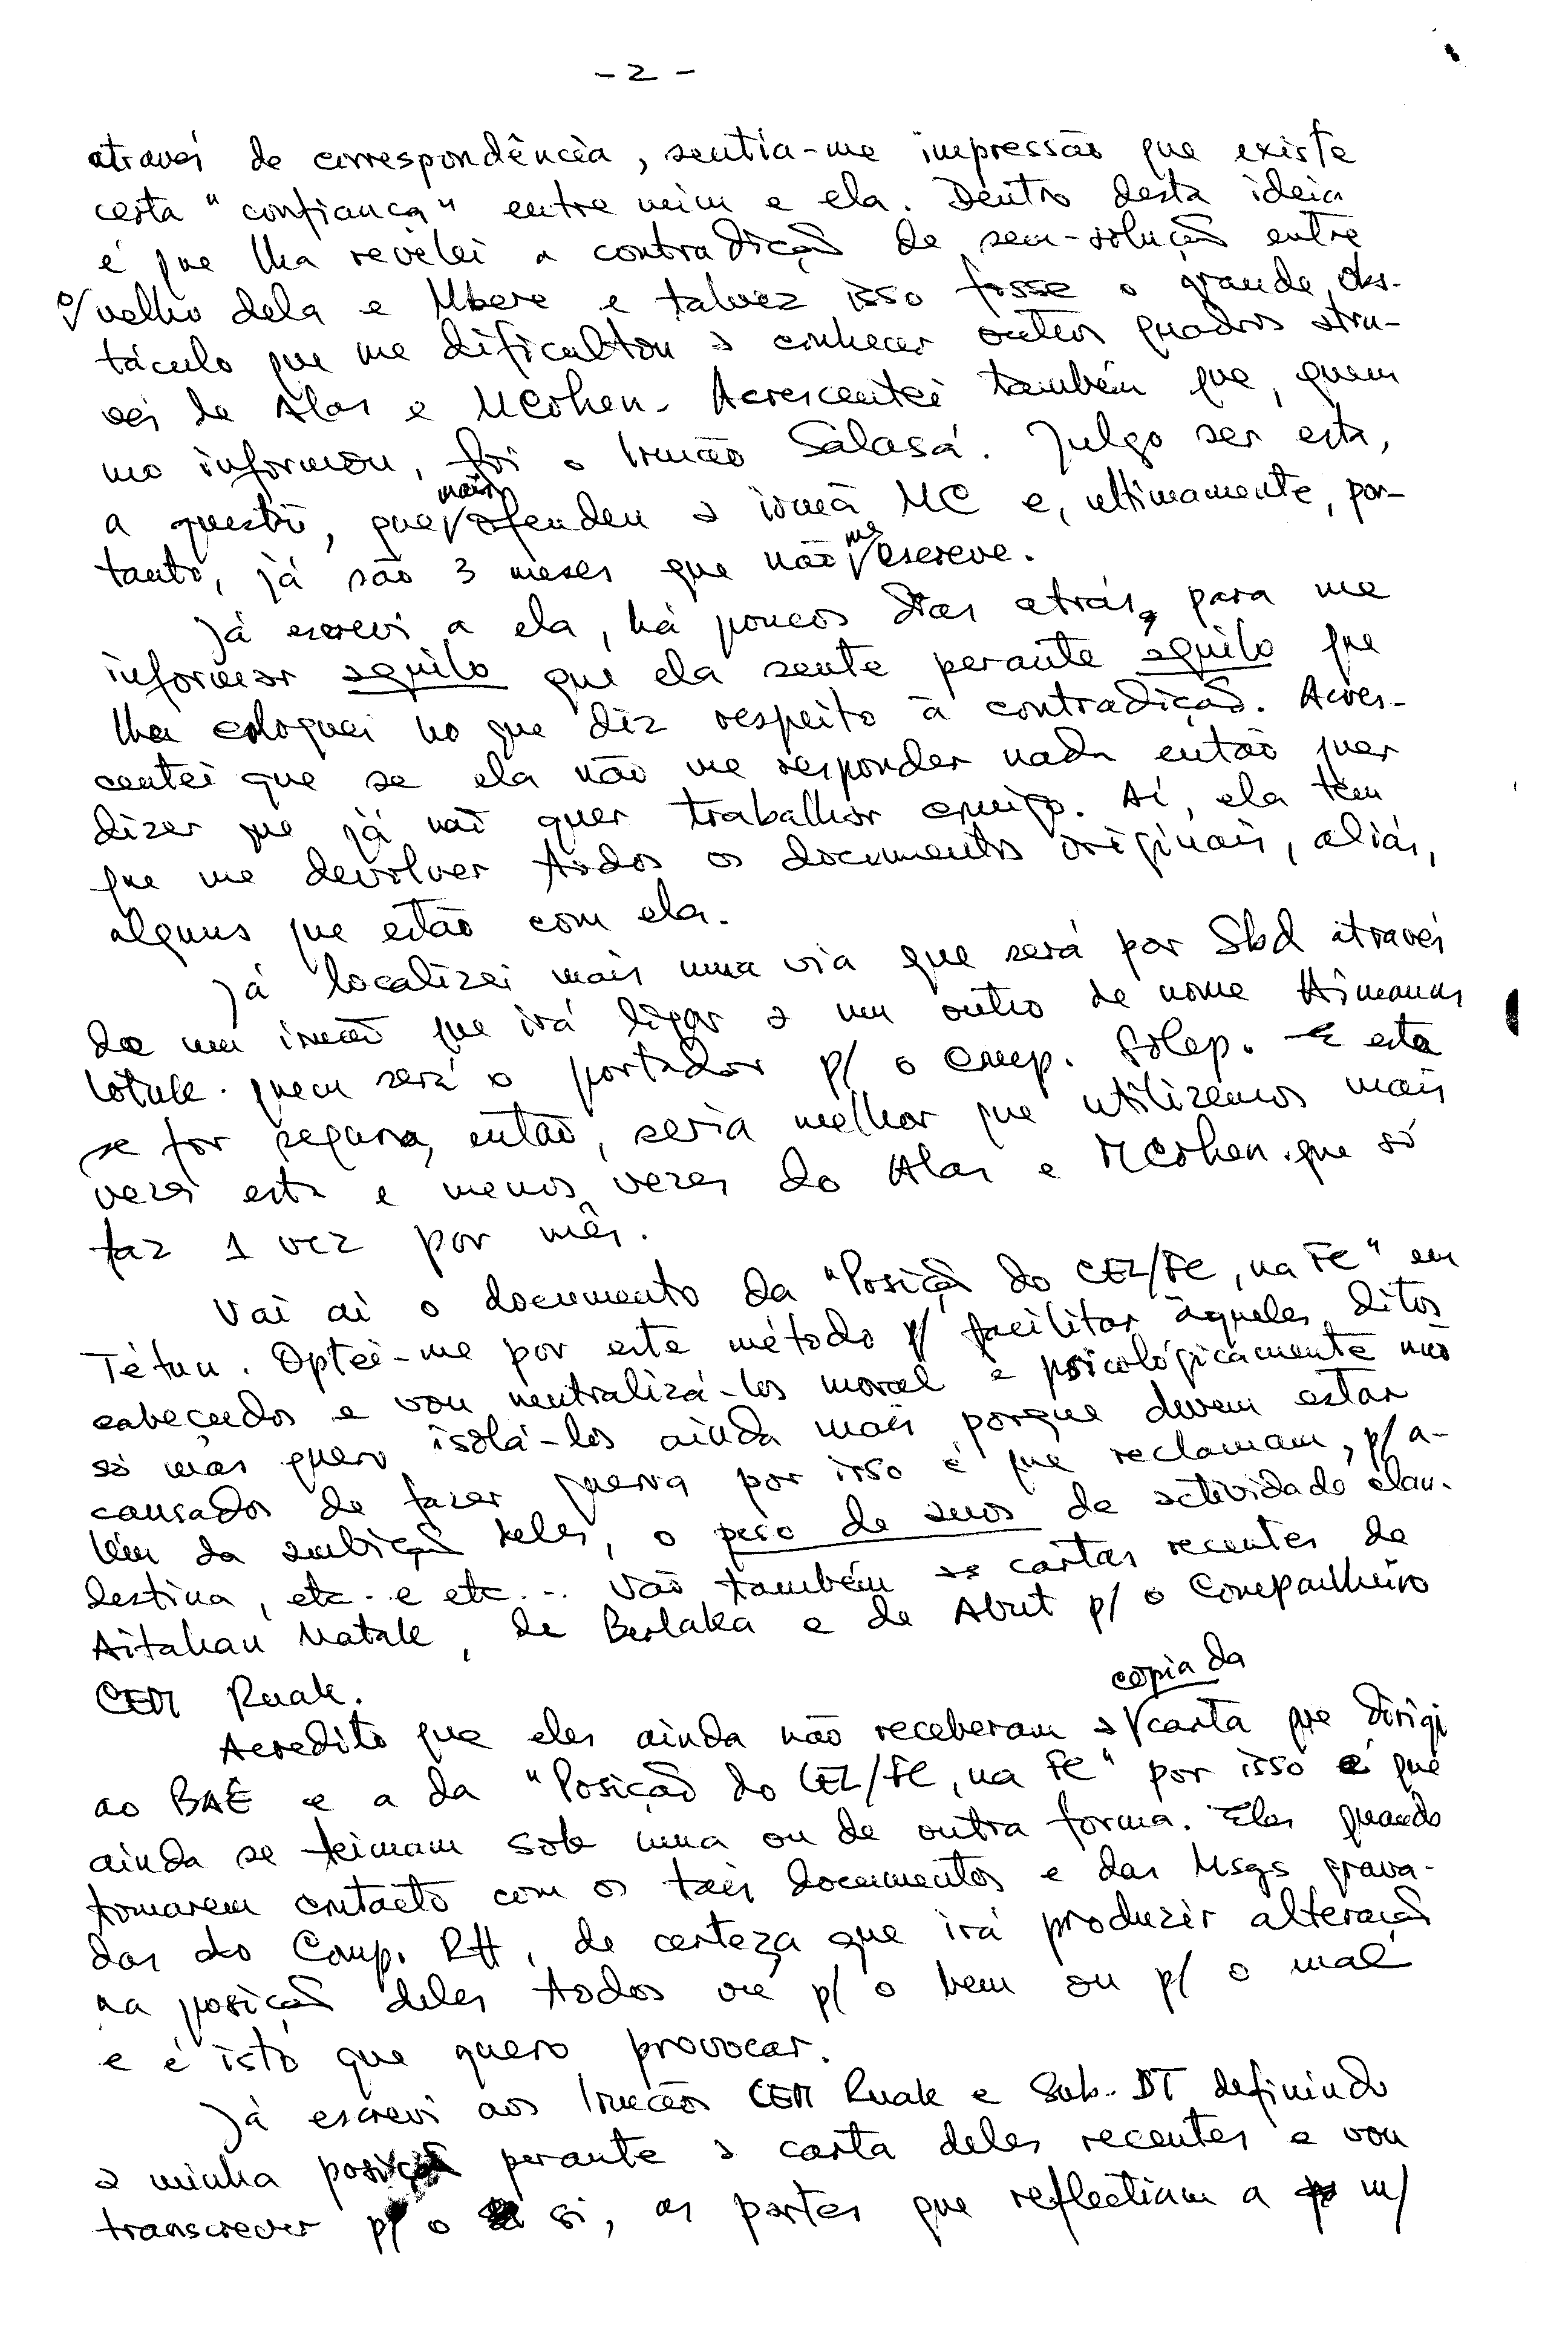 - 2 -
através de correspondência, sentia-me impressão que existe
certa "confiança" entre mim e ela. Dentro desta ideia
é que lha revelei a contradição de sem-solução entre
o velho dela e Mbere e talvez isso fosse o grande obs-
táculo que me dificultou a conhecer outros quadros atra-
vés de Alas e MCohen. Acrescentei também que, quem
mo informou, foi o Irmão Salasá. Julgo ser esta,
a questão, que mais ofendeu a irmã MC e, ultimamente, por-
tanto, já são 3 meses que não me escreve.
Já escrevi a ela, há poucos dias atrás, para me
informar aquilo que ela sente perante aquilo que
lha coloquei no que diz respeito à contradição. Acres-
centei que se ela não me responder nada então quer
dizer que já não quer trabalhar comigo. Aí, ela tem
que me devolver todos os documentos originais, aliás,
alguns que estão com ela.
Já localizei mais uma via que será por Sbd através
de um irmão que irá ligar a um outro de nome
Lotuk. quem será o portador p/ o comp. E esta
se for segura, então, seria melhor que utilizemos mais
vezes esta e menos vezes do Alas e MCohen que só
faz 1 vez por mês.
Vai aí o documento da "Posição do CEL/FC, na FC" em
Tétun. Optei-me por este método p/ facilitar àqueles ditos
cabeçudos e vou neutralizá-los moral e psicológicamente não
só mas quero isolá-los ainda mais porque devem estar
cansados de fazer guerra por isso é que reclamam, p/ a-
lém da ambição deles, o peso de anos de actividade clan-
destina, etc. e etc... Vão também as cartas recentes de
Aitahan Matak, de Berlaka e de Abut p/ o Companheiro
CEM Ruak.
Acredito que eles ainda não receberam a copia da carta que dirigi
ao BAE e a da "Posição do CEL/FC, na FC" por isso é que
ainda se teimam sob uma ou de outra forma. Eles quando
tomarem contacto com os tais documentos e das Msgs grava-
das do Comp. RH, de certeza que irá produzir alteração
na posição deles todos ou p/ o bem ou p/ o mal
e é isto que quero provocar.
Já escrevi aos Irmãos CEM Ruak e Sub. DT definindo
a minha posição perante a carta deles recentes e vou
transcrever p/ o si, as partes que reflectiam a m/